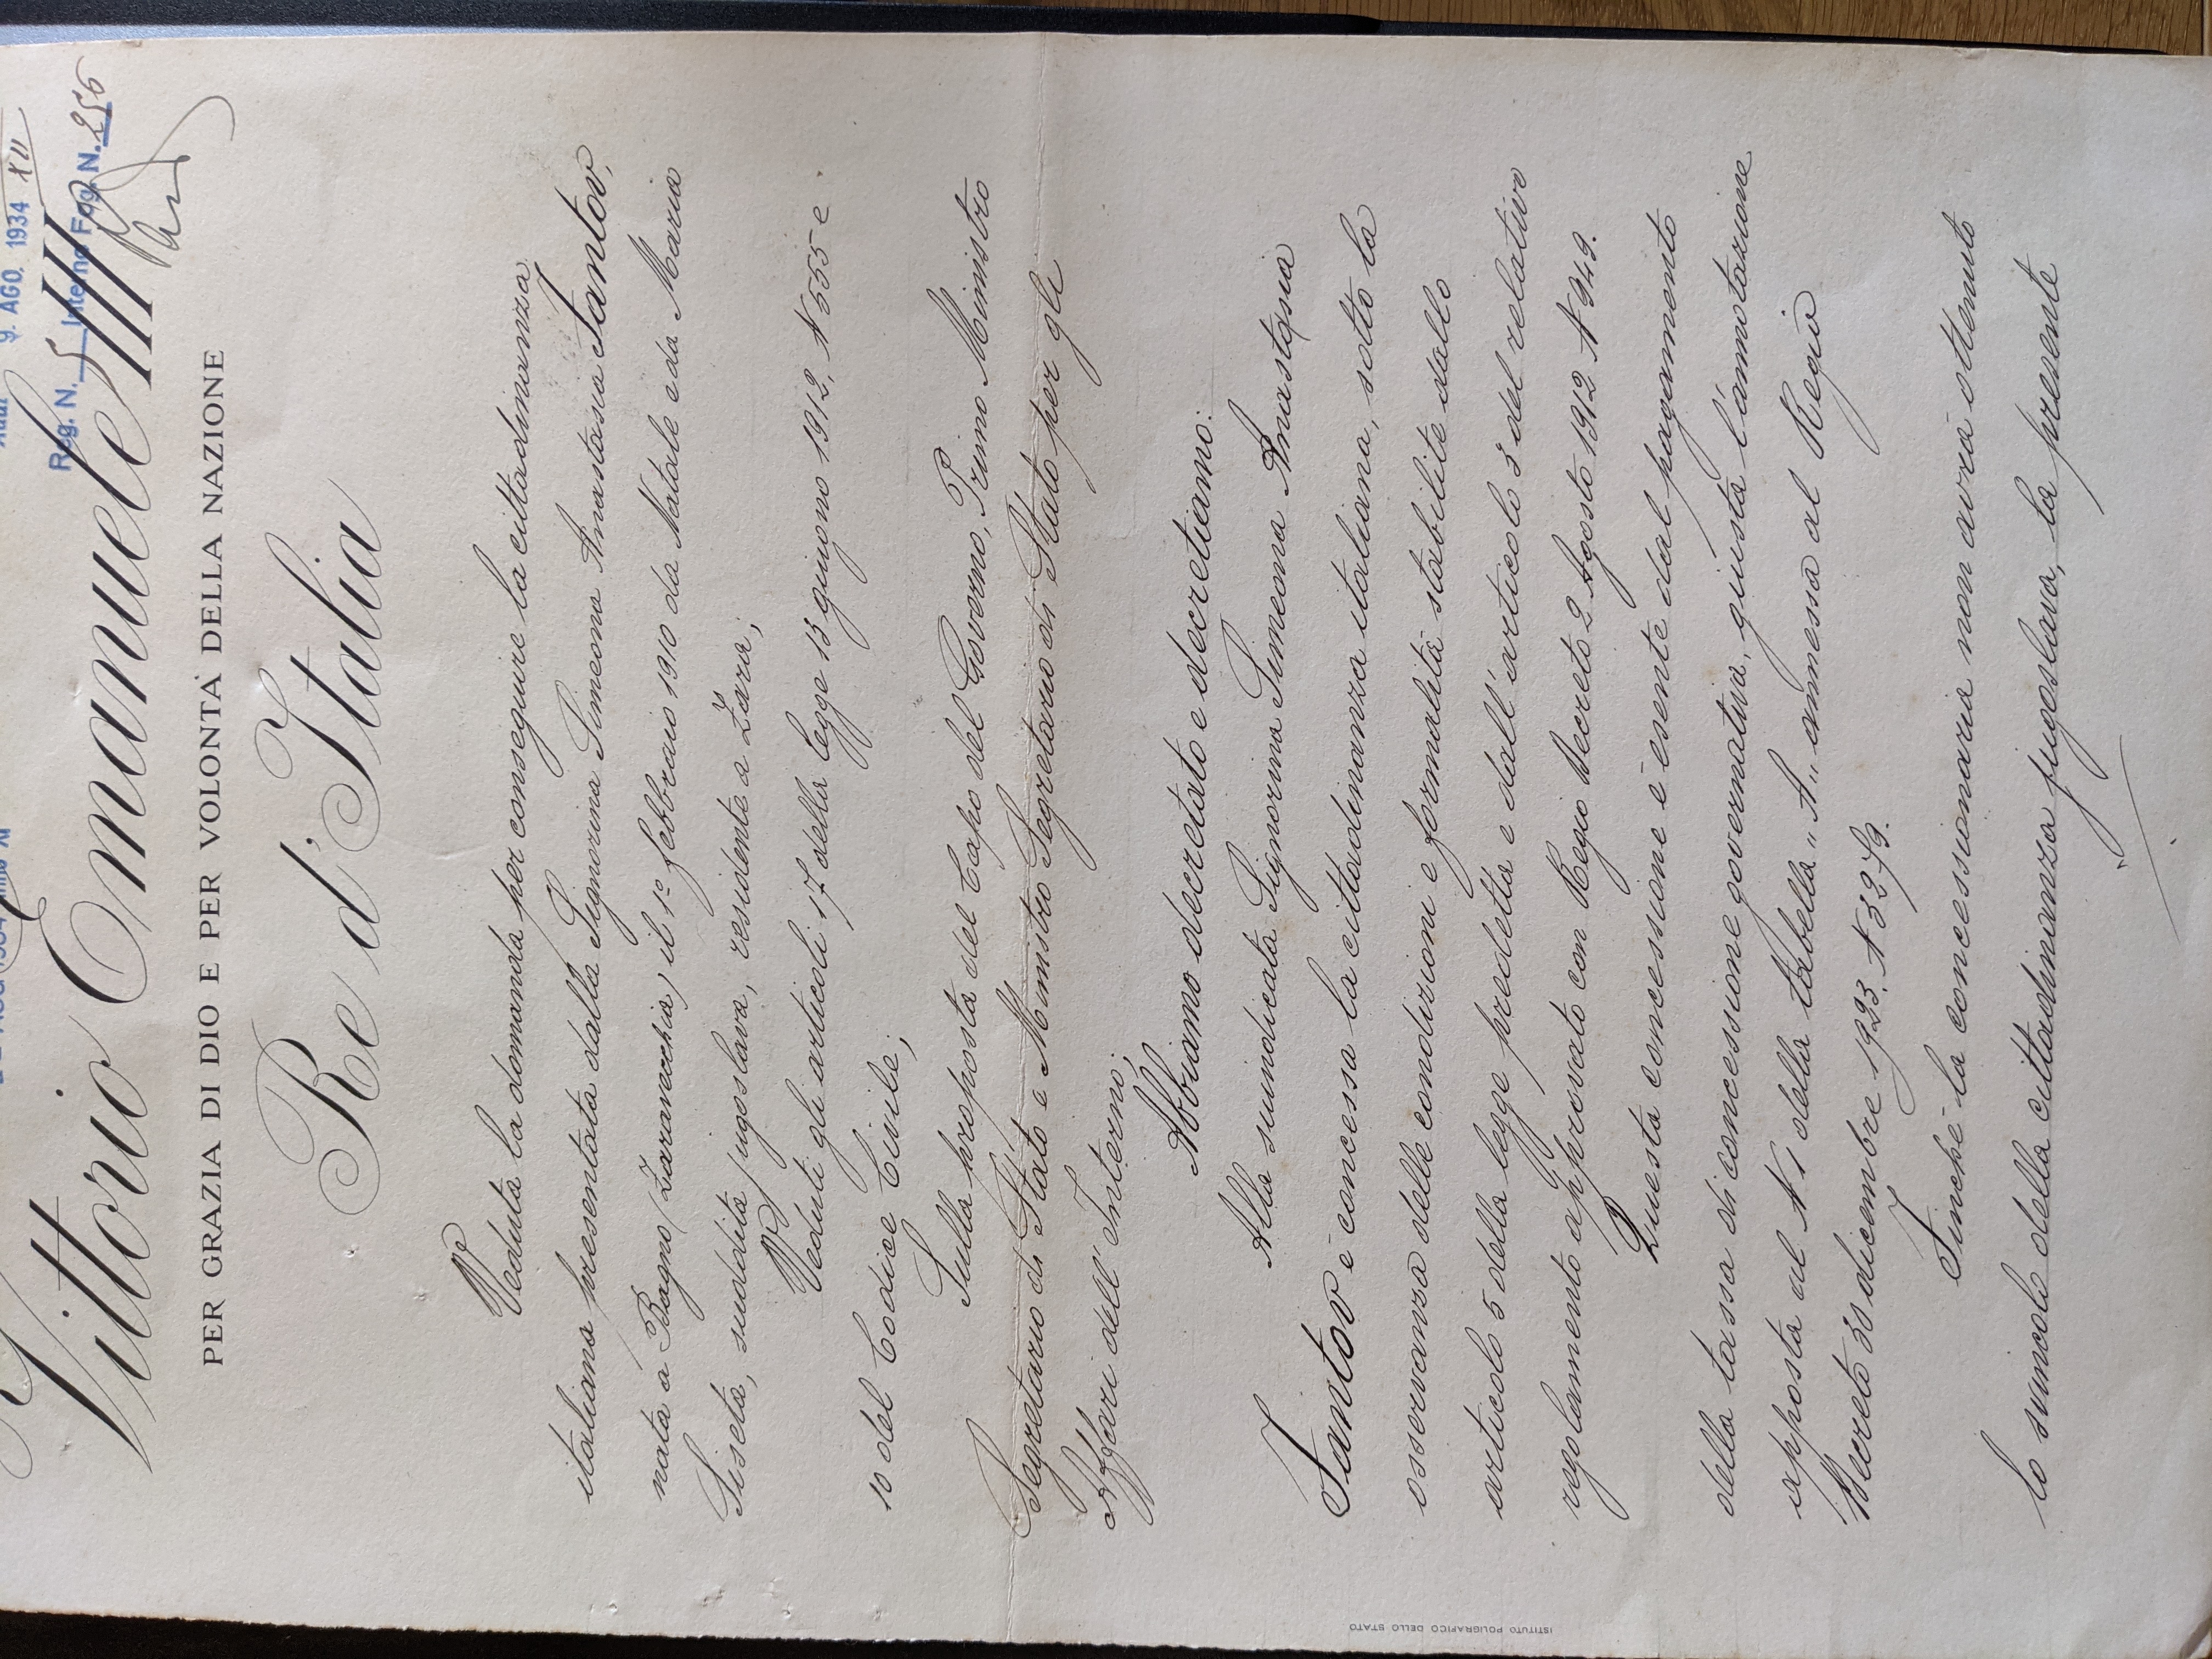 9. AGO. 1934 XII
Reg. N. 5 Interno Fog. N. 256
Vittorio Emanuele III
PER GRAZIA DI DIO E PER VOLONTÀ DELLA NAZIONE
Re d'Italia
Veduta la domanda per conseguire la cittadinanza
italiana presentata dalla Signorina Simeona Anastasia Fantov,
nata a Bagno (Zaravecchia) il 1º febbraio 1910 da Natale e da Maria
Siseta, suddita jugoslava, residente a Zara;
Veduti gli articoli 17 della legge 13 giugno 1912, N 555 e
10 del Codice Civile;
Sulla proposta del Capo del Governo, Primo Ministro
Segretario di Stato e Ministro Segretario di Stato per gli
Affari dell'Interno;
Abbiamo decretato e decretiamo:
Alla suindicata Signorina Simeona Anastasia
Fantov è concessa la cittadinanza italiana, sotto la
osservanza delle condizioni e formalità stabilite dallo
articolo 5 della legge predetta e dall'articolo 3 del relativo
regolamento approvato con Regio Decreto 2 Agosto 1912 N 949.
Questa concessione è esente dal pagamento
della tassa di concessione governativa, giusta l'annotazione
apposta al N 1 della tabella "A" annessa al Regio
Decreto 30 dicembre 1923. N 3279.
Finché la concessionaria non avrà ottenuto
lo svincolo della cittadinanza jugoslava, la presente
ISTITUTO POLIGRAFICO DELLO STATO